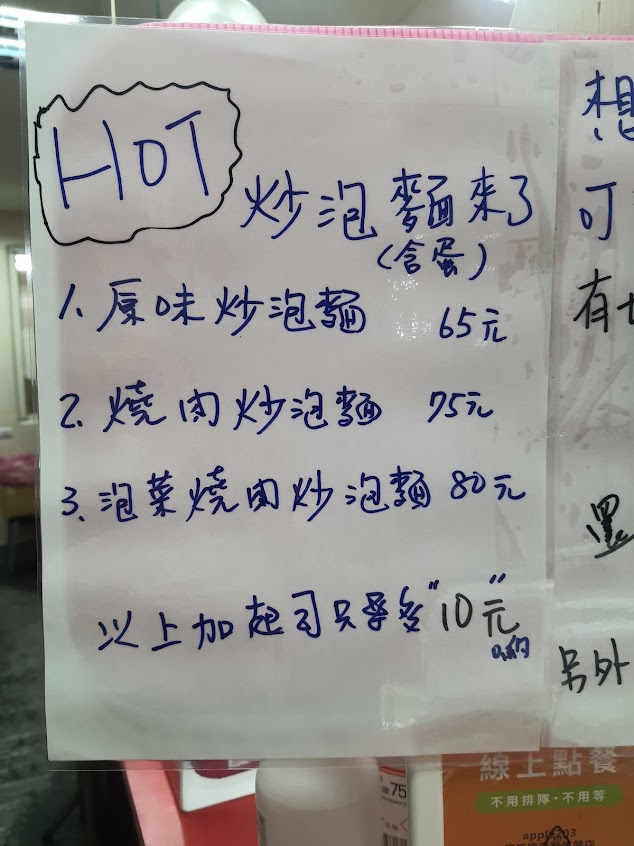 HOT
炒泡麵來了
(含蛋)
1. 原味炒泡麵 65元
2. 燒肉炒泡麵 75元
3. 泡菜燒肉炒泡麵 80元
以上加起司只要多"10元"
喲
想
可
有
還
另外
75
線上點餐
不用排隊・不用等